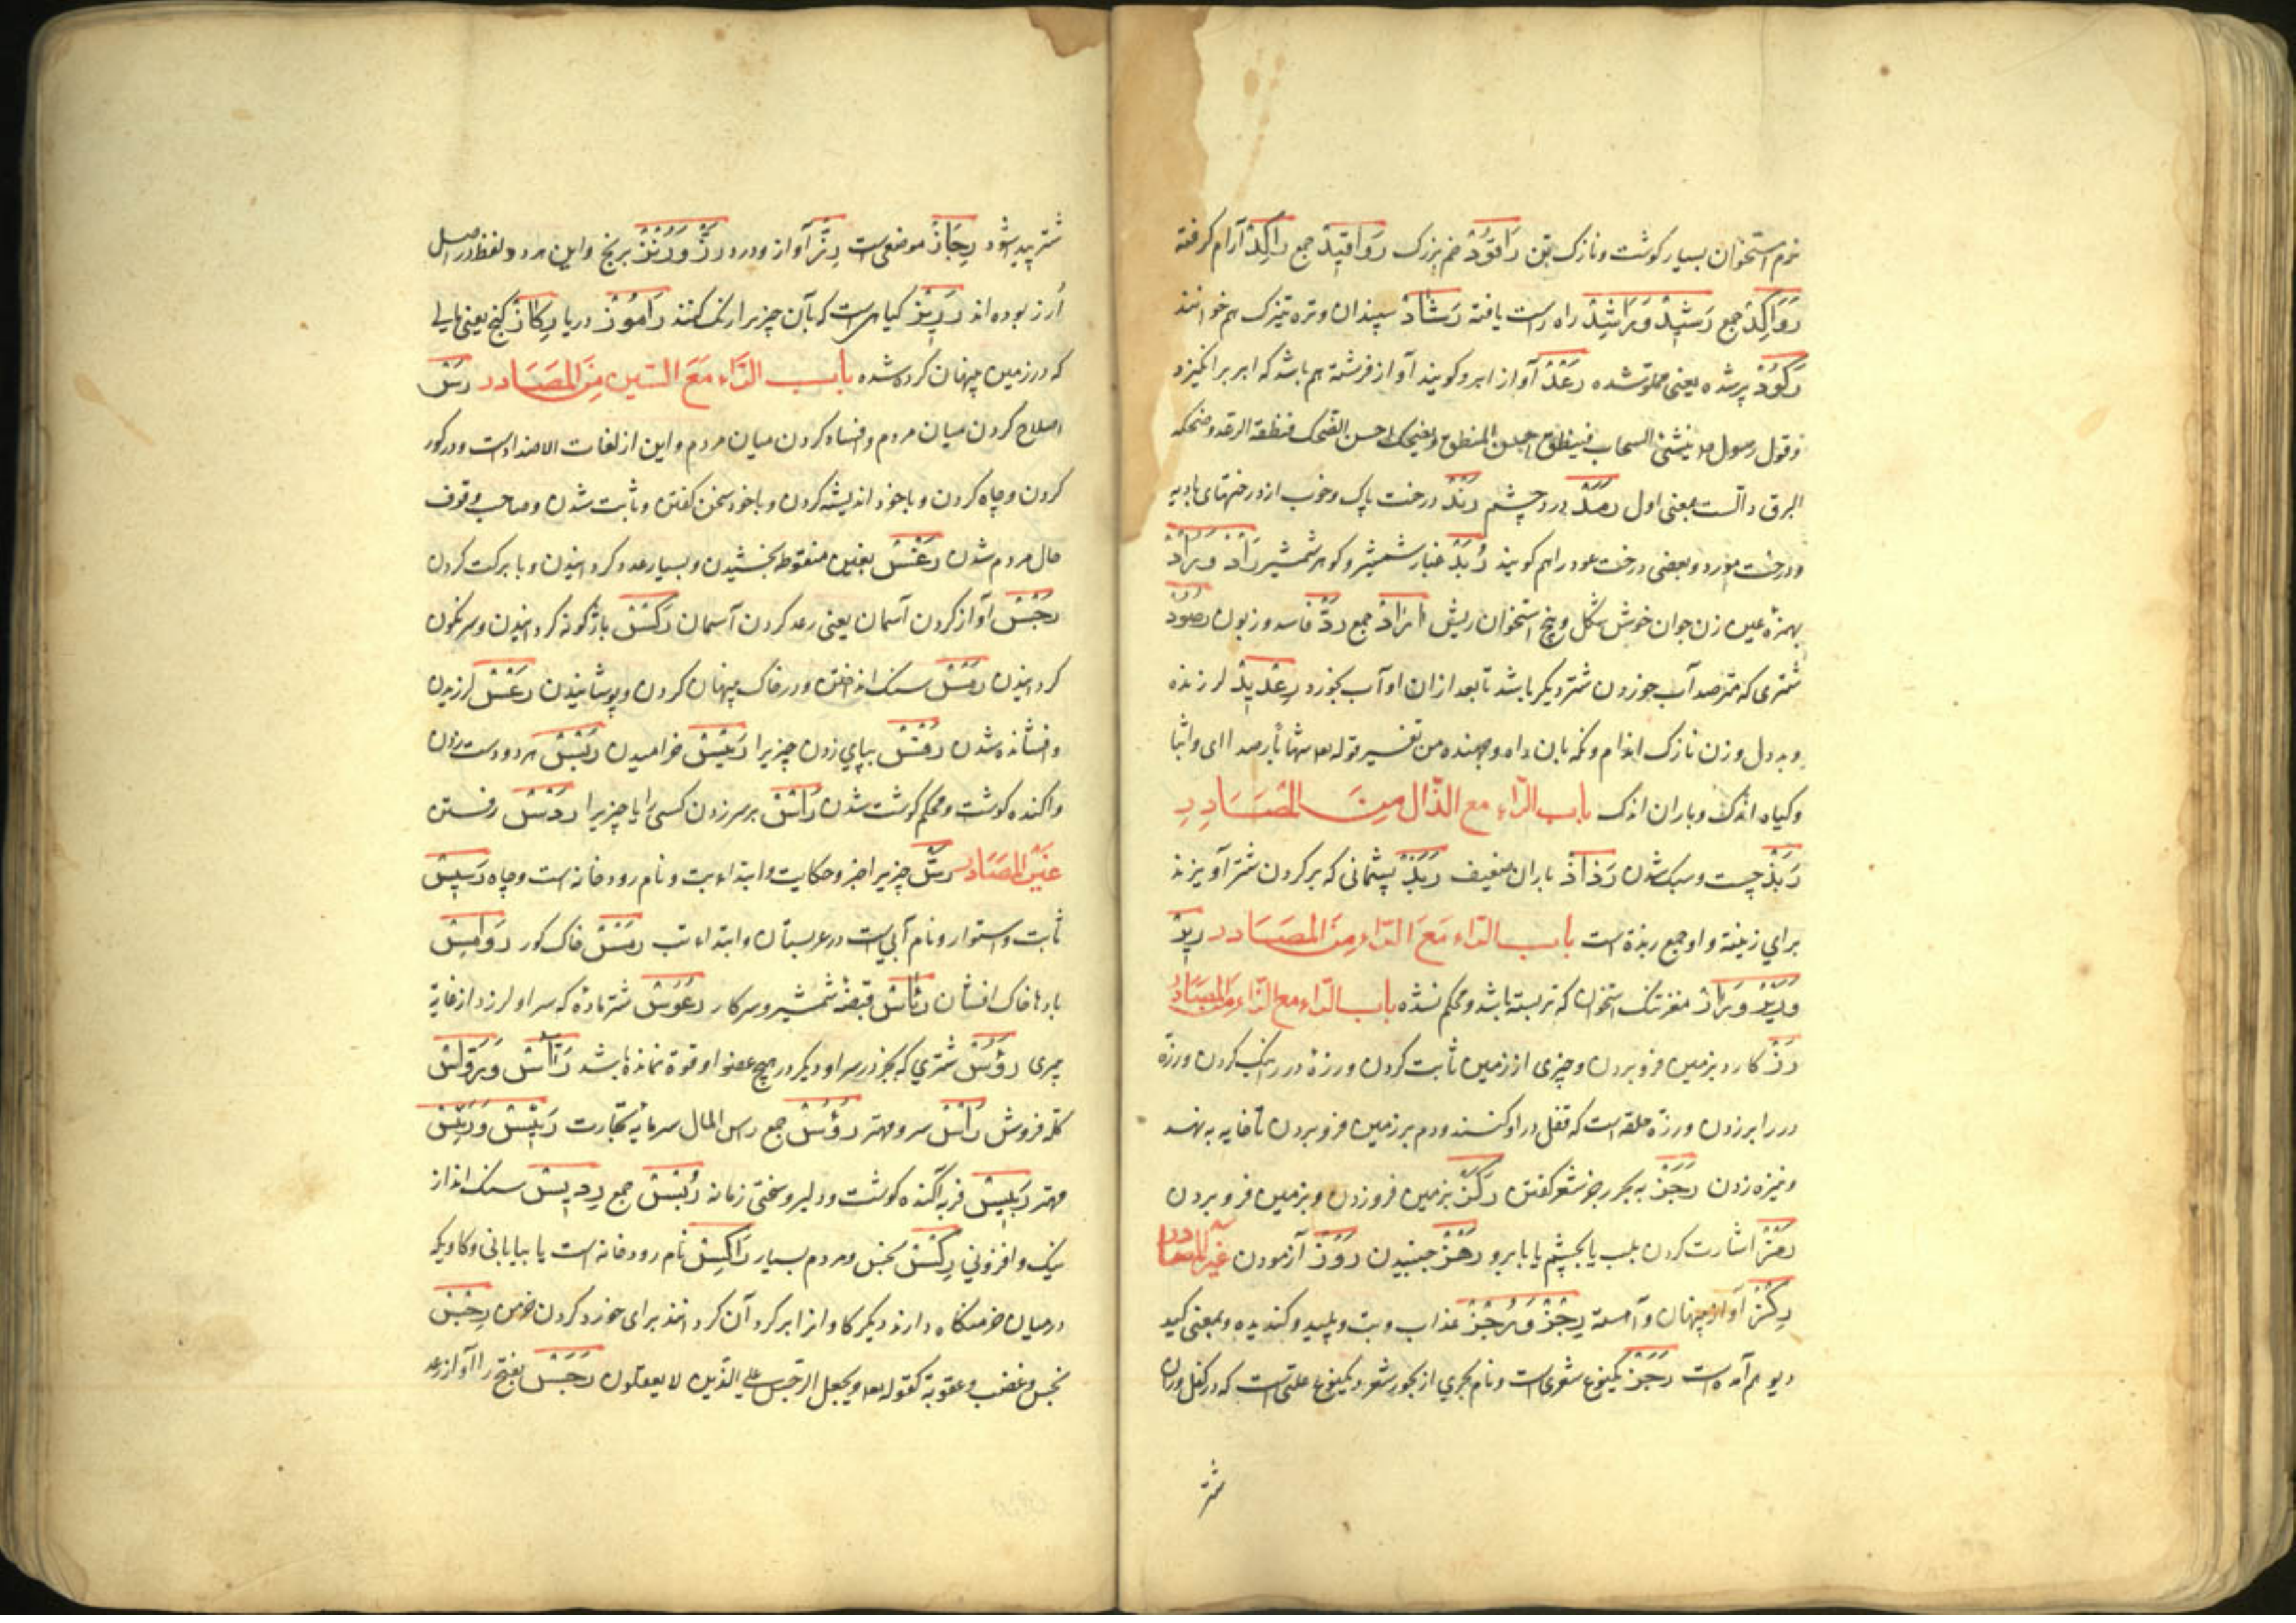 نرم استخوان بسیار کوشت ونازک تن رَاقُودْ خم بزرک رَوَاقِیدْ جمع رَاکِدْ آرام کرفته
رَوَاکِدْ جمع رَشِیدْ وَرَاشِدْ راه راست یافته رَشَادْ سپندان وتره تیزک هم خوانند
رَکُودْ پرشده یعنی مملو شده رَعْدْ آواز ابر وکویند آواز فرشته هم باشد که ابر برانکیزد
وقول رسول ینشئ السحاب فینطق احسن المنطق ویضحک احسن الضحک فنطقه الرعد وضحکه
البرق دالست بمعنی اول رَمَدْ درد چشم رَنْدْ درخت پاک وخوب از درختهای بادیه
ودرخت مورد وبعضی درخت عود را هم کویند رُبَدْ غبار شمشیر وکوهر شمشیر رَأْدْ وَرَادْ
بهمزه عین زن جوان خوش شکل وبیخ استخوان ریش اَرْادْ جمع رَدّْ فاسد وزبون رَصُودْ
شتری که مترصد آب خوردن شتر دیکر باشد تا بعد ازان او آب بخورد رِعْدِیدْ لرزنده
وبددل وزن نازک اندام ونکه بان راه وجهنده من تفسیر قوله شهابا رصدا ای واثبا
وکیاه اندک وباران اندک باب الرّاء مع الذّال مِنَ المَصَادِرِ
رَبَذْ چست وسبک شدن رَذَاذْ باران ضعیف رَبَذْ پشمانی که بر کردن شتر آویزند
برای زینة واو جمع ربذة است باب الرّاء مَعَ الرّاء مِنَ المَصَادر رِیرْ
وَرَیْرْ وَرَارْ مغز تنک استخوان که تر بسته باشد ومحکم نشده باب الرّاء مع الزّاء مِنَ المَصَادِرْ
رَزّْ کارد بزمین فرو بردن وچیزی از زمین ثابت کردن ورزة در رانک کردن ورزّة
در را بر زدن ورزّة حلقه است که قفل در او کنند ودم بر زمین فرو بردن تا خایه بنهد
ونیزه زدن رَجَزْ به بحر رجز شعر کفتن رَکْزْ بزمین فرو زدن وبزمین فرو بردن
رَمْزْ اشارت کردن بلب یا بچشم یا بابرو رَهْزْ جنبیدن رَوْزْ آزمودن غیر المصادر
رِکْزْ آواز پنهان وآهسته رِجْزْ وَرُجْزْ عذاب وبت وپلید وکندیده وبمعنی کید
دیو هم آمده است رَجَزْ یکنوع شعری است ونام بحری از بحور شعر ویکنوع علتی است که در کفل وران
شتر
شتر پید شود رِجَازْ موضعی است رِزّْ آواز ودرد رُزّْ وَرُنْزْ برنج واین هر دو لفظ در اصل
اُرز بوده اند رَدِیزْ کیاهی است که بآن چیز را رنک کنند رَامُوزْ دریا رِکَازْ کنج یعنی مالی
که در زمین پنهان کرده شده باب الرّاء مَعَ السّین مِنَ المَصَادر رَسّْ
اصلاح کردن میان مردم وافساد کردن میان مردم واین از لغات الاضداد است ودر کور
کردن وچاه کردن وبا خود اندیشه کردن وبا خود سخن کفتن وثابت شدن وصاحب وقوف
حال مردم شدن رَغْسْ بغین منقوطه بخشیدن وبسیار عدد کردانیدن وبا برکت کردن
رَجْسْ آواز کردن آسمان یعنی رعد کردن آسمان رَکْسْ باژکونه کردانیدن وسرنکون
کردانیدن رَمْسْ سنک انداختن ودر خاک پنهان کردن وپوشانیدن رَعْسْ لرزیدن
وفشانده شدن رَفْسْ بپای زدن چیزی را رَیْسْ خرامیدن رَبْسْ هر دو دست زدن
واکنده کوشت ومحکم کوشت شدن رَأسْ بر سر زدن کسی را یا چیزیرا رَدْسْ رفتن
غَیْر المَصَادر رَسّْ چیزیرا خبر وحکایت وابتداء تب ونام رودخانه است وچاه رَسِیسْ
ثابت واستوار ونام آبی است در عربستان وابتداء تب رَمْسْ خاک کور رَوَامِسْ
بادها خاک افشان رِئَاسْ قبضه شمشیر وسر کار رَعُوسْ شتر ماده که سر او لرزد از غایة
پیری رَؤُسْ شتری که بجز در سر او دیکر در هیچ عضو او قوة نمانده باشد رَأَّاسْ وَرَوَّاسْ
کله فروش رَأْسْ سر ومهتر رُؤُسْ جمع راس المال سرمایه تجارت رَئِیسْ وَرَیِّسْ
مهتر رَبِیسْ فربه آکنده کوشت ودلیر وسختی زمانه رُبْسْ جمع رِدِیسْ سنک انداز
نیک وافزونی رِکْسْ نجس ومردم بسیار رَاکِسْ نام رودخانه است یا بیابانی وکاویکه
در میان خرمنکاه دارند ودیکر کاوانرا بر کرد آن کردانند برای خورد کردن خرمن رِجْسْ
نجس وغضب وعقوبة کقوله ویجعل الرّجس علی الّذین لا یعقلون رَجْسْ بفتح را آواز رعد